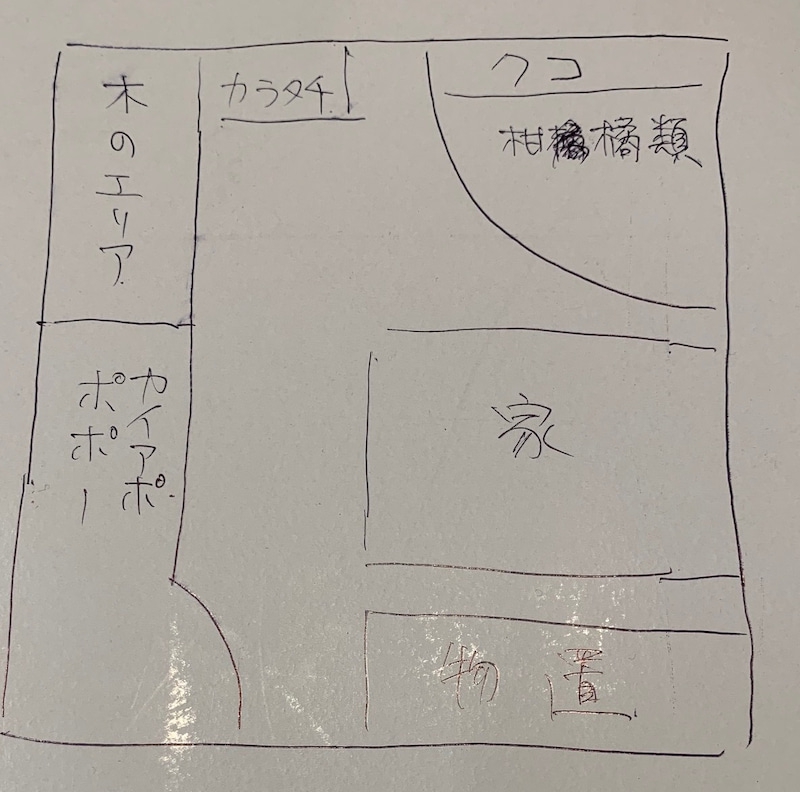 木のエリア
カラタチ
クコ
柑橘類
カイアポポ
ポポー
家
物置